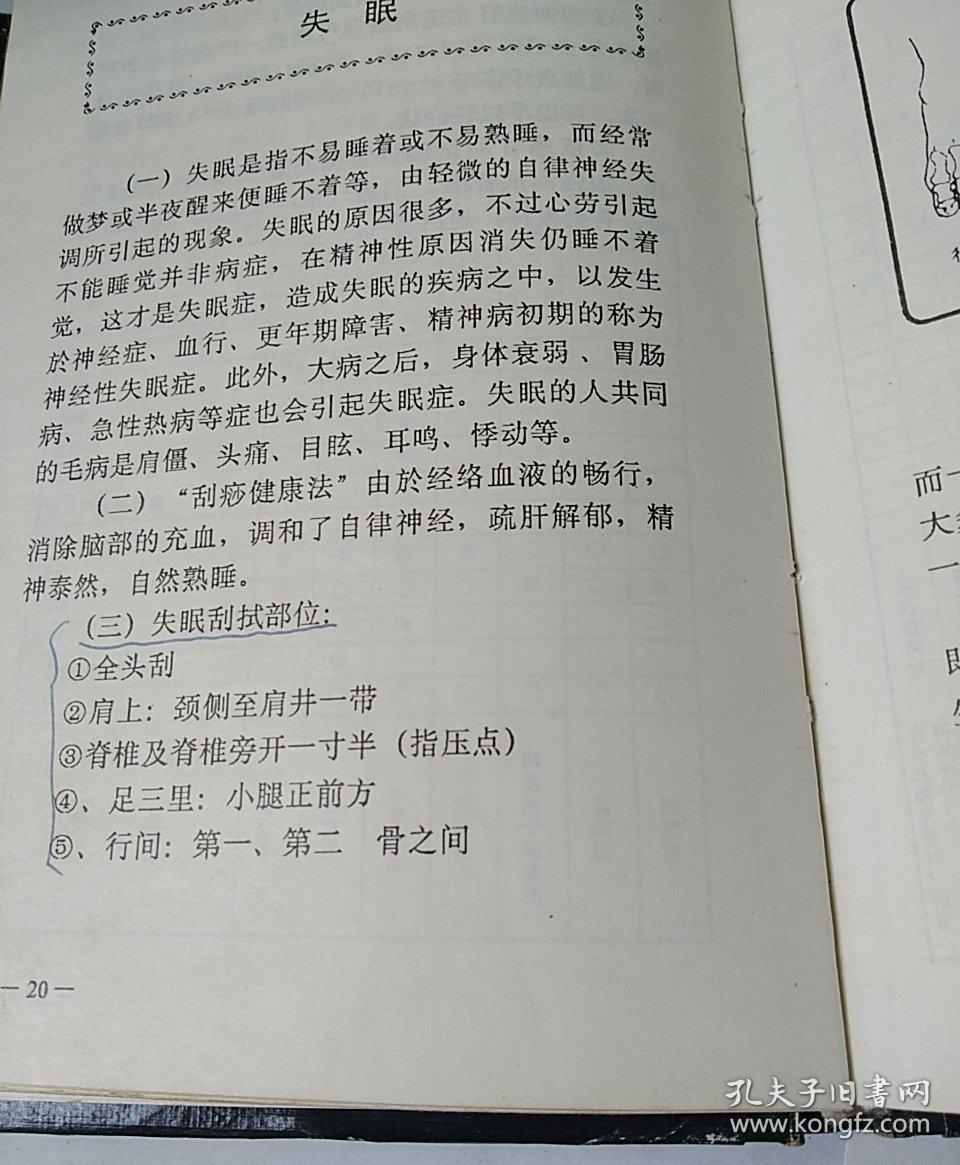 失 眠
(一) 失眠是指不易睡着或不易熟睡，而经常
做梦或半夜醒来便睡不着等，由轻微的自律神经失
调所引起的现象。失眠的原因很多，不过心劳引起
不能睡觉并非病症，在精神性原因消失仍睡不着
觉，这才是失眠症，造成失眠的疾病之中，以发生
於神经症、血行、更年期障害、精神病初期的称为
神经性失眠症。此外，大病之后，身体衰弱、胃肠
病、急性热病等症也会引起失眠症。失眠的人共同
的毛病是肩僵、头痛、目眩、耳鸣、悸动等。
(二) “刮痧健康法”由於经络血液的畅行，
消除脑部的充血，调和了自律神经，疏肝解郁，精
神泰然，自然熟睡。
(三) 失眠刮拭部位:
①全头刮
②肩上：颈侧至肩井一带
③脊椎及脊椎旁开一寸半（指压点）
④、足三里：小腿正前方
⑤、行间：第一、第二 骨之间
— 20 —
而一
大
一
孔夫子旧书网
www.kongfz.com